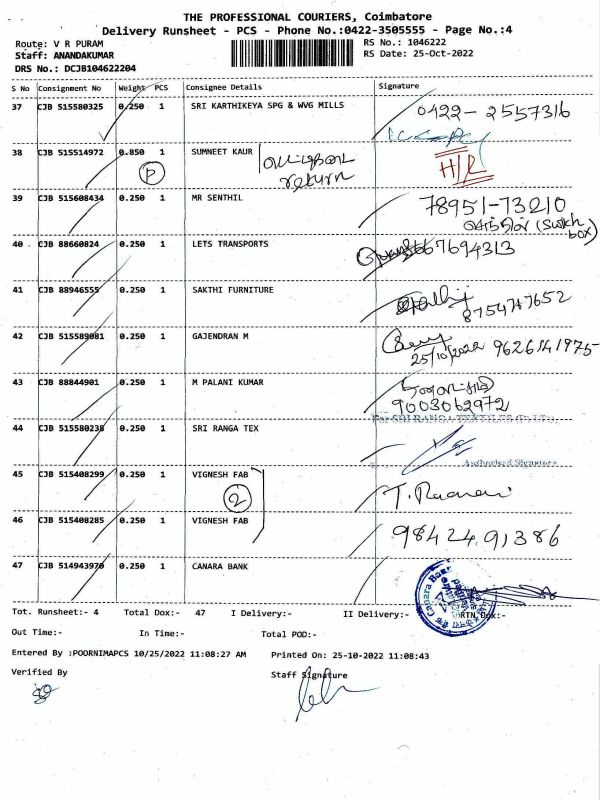 THE PROFESSIONAL COURIERS, Coimbatore
Delivery Runsheet - PCS - Phone No.:0422-3505555 - Page No.:4
Route: V R PURAM
RS No.: 1046222
Staff: ANANDAKUMAR
RS Date: 25-Oct-2022
DRS No.: DCJB104622204
S No Consignment No Weight PCS Consignee Details Signature
37 CJB 515580325 0.250 1 SRI KARTHIKEYA SPG & WVG MILLS 0422-2557316
38 CJB 515514972 0.850 1 SUMNEET KAUR H/R
P return
39 CJB 515608434 0.250 1 MR SENTHIL 78951-73210
(Switch box)
40 CJB 88660824 0.250 1 LETS TRANSPORTS 7694313
41 CJB 88946555 0.250 1 SAKTHI FURNITURE
8754747652
42 CJB 515589081 0.250 1 GAJENDRAN M
25/10/2022 9626141975
43 CJB 88844901 0.250 1 M PALANI KUMAR
9003062972
44 CJB 515580238 0.250 1 SRI RANGA TEX
Authorised Signature
45 CJB 515408299 0.250 1 VIGNESH FAB
2
46 CJB 515408285 0.250 1 VIGNESH FAB 9842491386
47 CJB 514943970 0.250 1 CANARA BANK
Canara Bank
Tot. Runsheet:- 4 Total Dox:- 47 I Delivery:- II Delivery:- RTN Dox:-
Out Time:- In Time:- Total POD:-
Entered By :POORNIMAPCS 10/25/2022 11:08:27 AM Printed On: 25-10-2022 11:08:43
Verified By Staff Signature